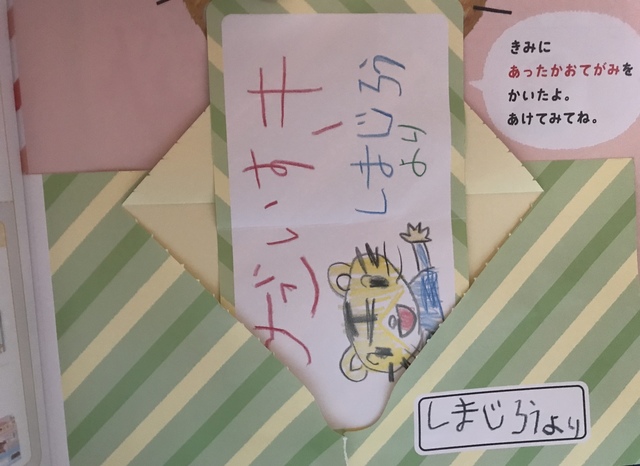 きみに
あったかおてがみを
かいたよ。
あけてみてね。
だいすき
しまじろう
より
しまじろうより